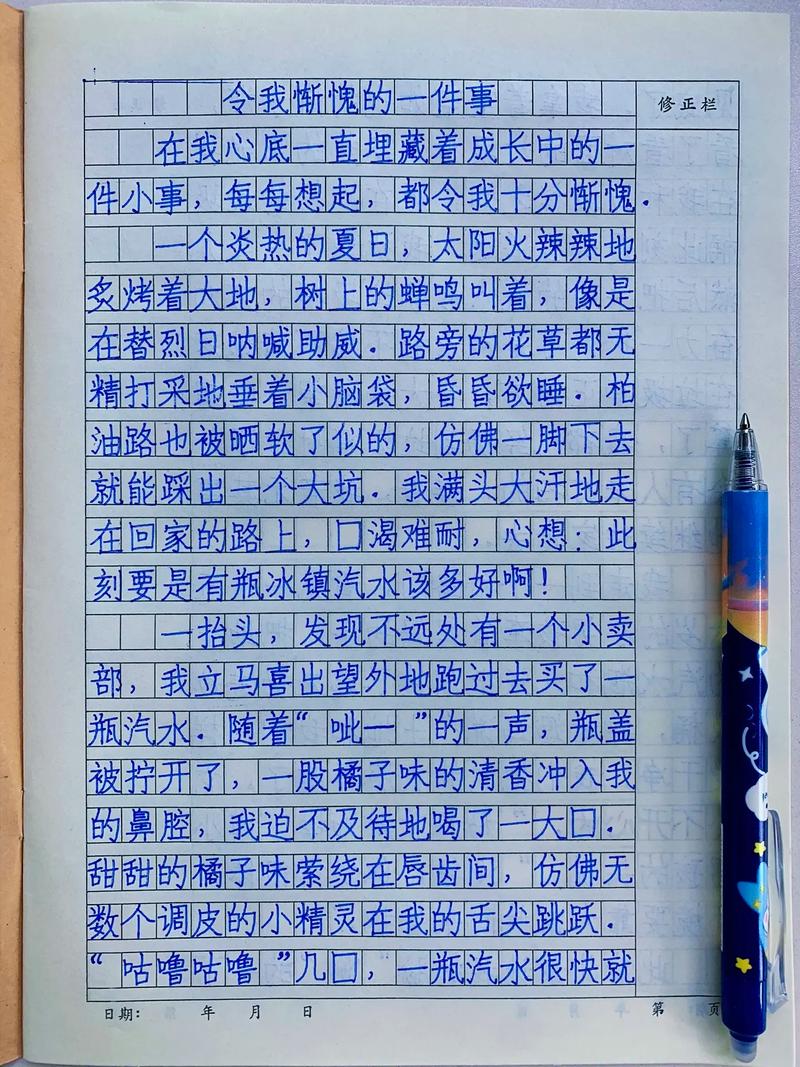 令我惭愧的一件事
修正栏
在我心底一直埋藏着成长中的一
件小事，每每想起，都令我十分惭愧.
一个炎热的夏日，太阳火辣辣地
炙烤着大地，树上的蝉鸣叫着，像是
在替烈日呐喊助威.路旁的花草都无
精打采地垂着小脑袋，昏昏欲睡.柏
油路也被晒软了似的，仿佛一脚下去
就能踩出一个大坑.我满头大汗地走
在回家的路上，口渴难耐，心想：此
刻要是有瓶冰镇汽水该多好啊！
一抬头，发现不远处有一个小卖
部，我立马喜出望外地跑过去买了一
瓶汽水.随着“呲一”的一声，瓶盖
被拧开了，一股橘子味的清香冲入我
的鼻腔，我迫不及待地喝了一大口.
甜甜的橘子味萦绕在唇齿间，仿佛无
数个调皮的小精灵在我的舌尖跳跃.
“咕噜咕噜”几口，一瓶汽水很快就
日期： 年 月 日 第 页